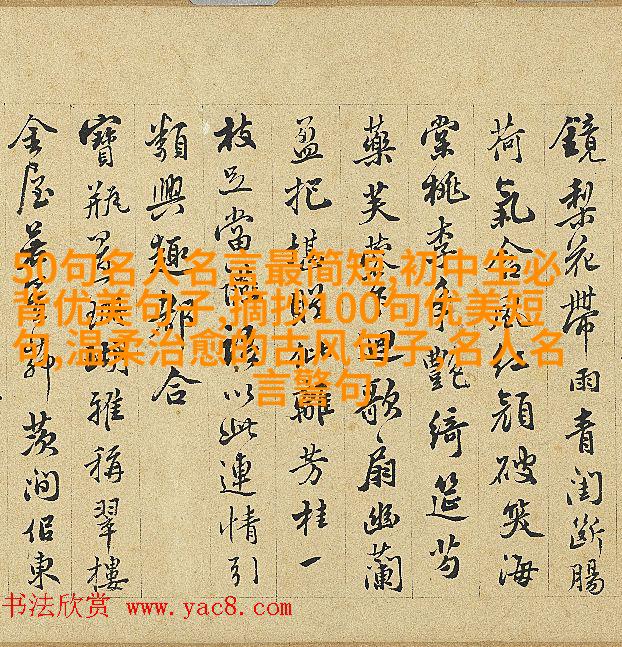 鏡梨花帶雨青閨斷腸
荷氣含風 顔破笑海
棠桃李爭艷綺筵芍
藥芙蓉 歌扇幽蘭
盈把堪贈 離芳桂一
枝足當 語以此連情引
類興趣都合
寶瓶 瑚雅稱翠樓
金屋 茨澗侶東
50句名人名言最简短,初中生必
背优美句子,摘抄100句优美短
句,温柔治愈的古风句子,名人名
言警句
书法欣赏 www.yac8.com